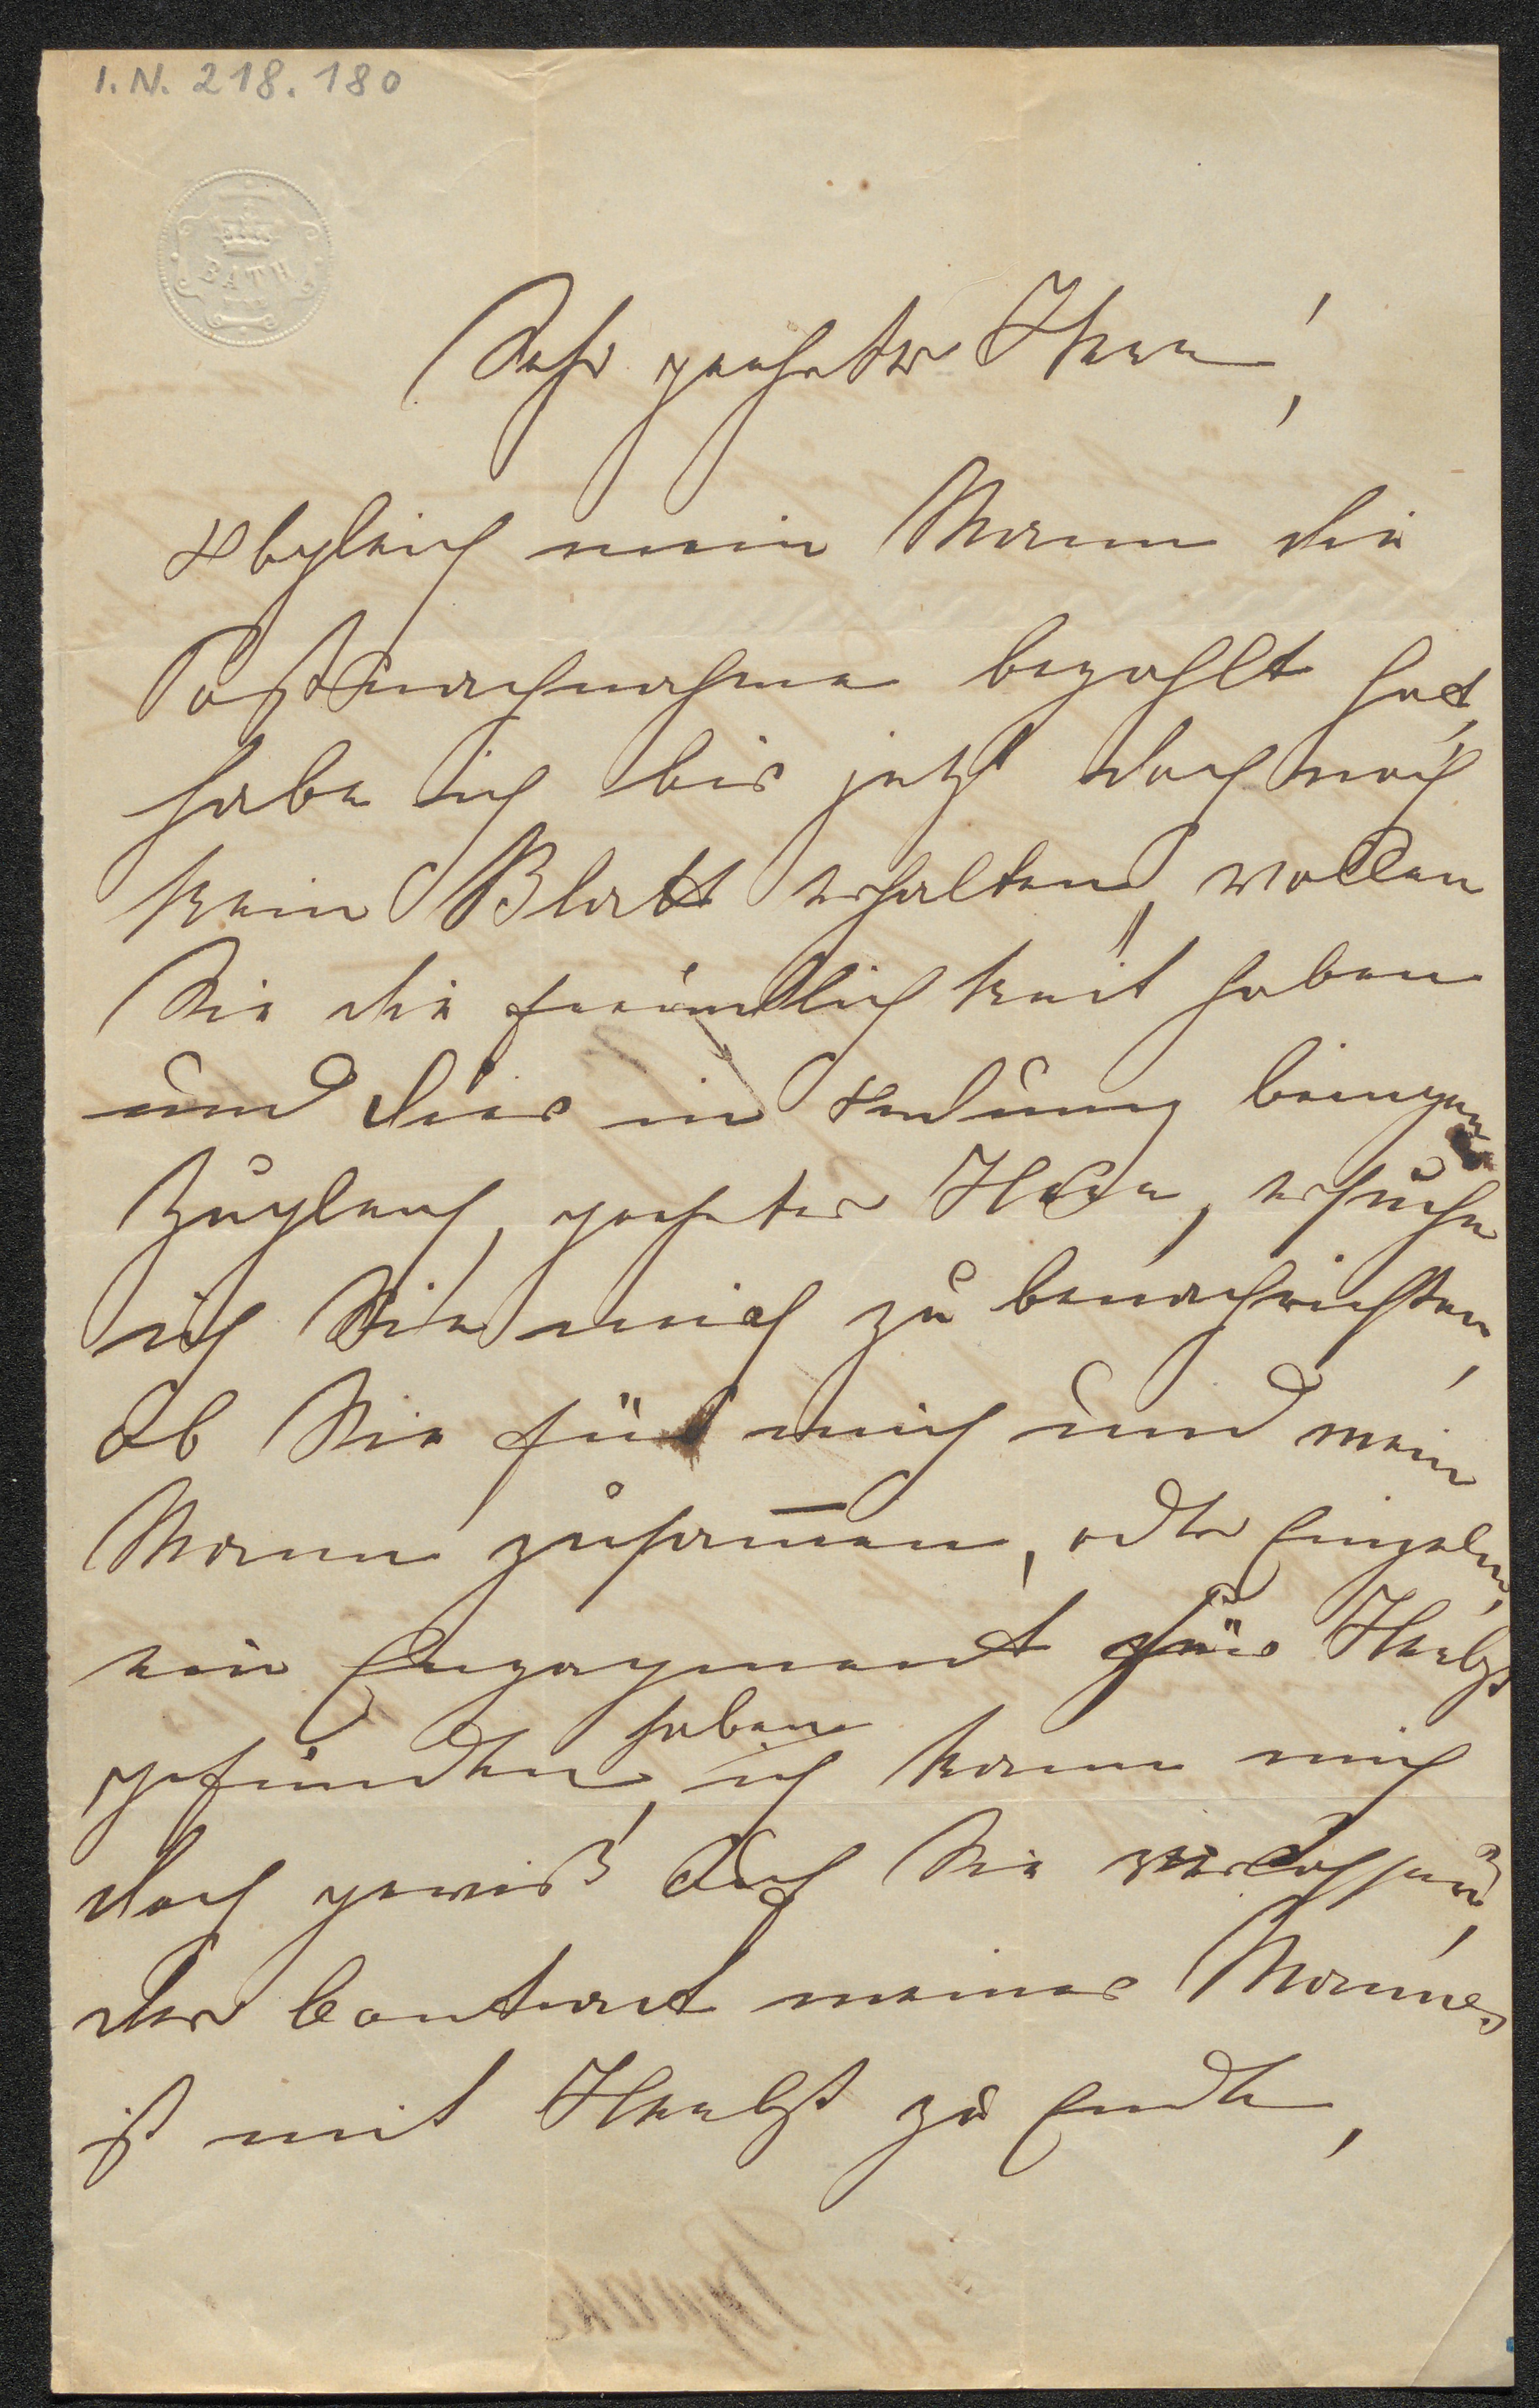 I. N. 218.180
BATH
Sehr geehrter Herr!
Obgleich mein Mann die
Postnachnahme bezahlt hat,
habe ich bis jetzt doch noch
kein Blatt erhalten, wollen
Sie die freundlichkeit haben
und dies in Ordnung bringen
Zugleich, geehrter Herr, ersuche
ich Sie mich zu benachrichten,
ob Sie für mich und mein
Mann zusam̅en, oder Einzeln,
ein Engagement für Herbst
haben
gefunden, ich kann mich
doch gewiß auf Sie verlassen,
der Contract meines Mannes
ist mit Herbst zu Ende,